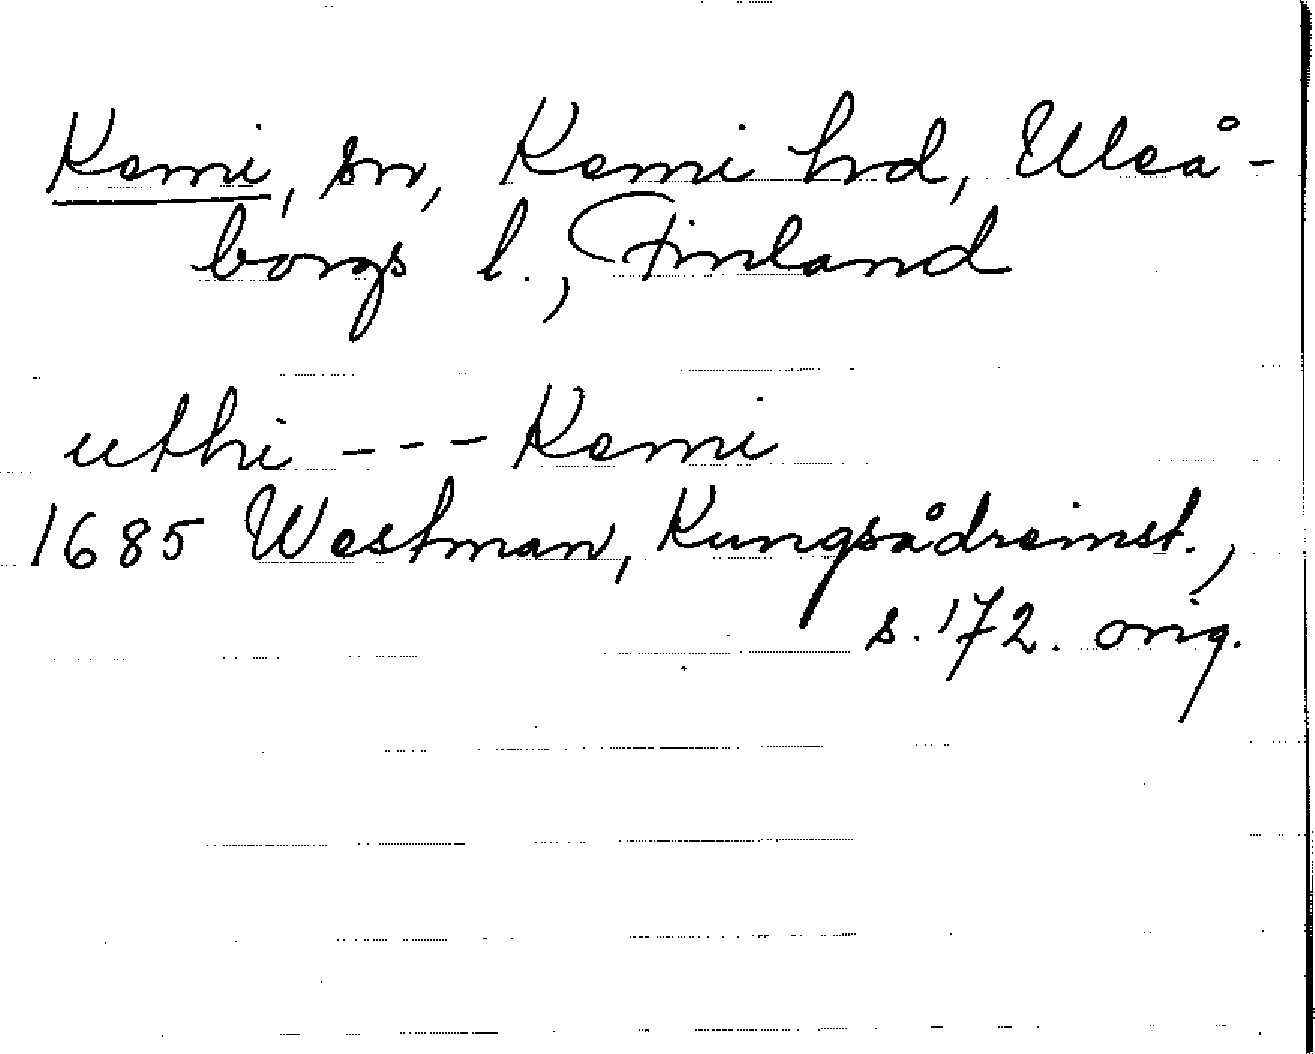 Kemi, sn, Kemi hrd, Uleå-
borgs l., Finland
uthi --- Kemi
1685 Westman, Kungsådreinst.,
s. 172. orig.